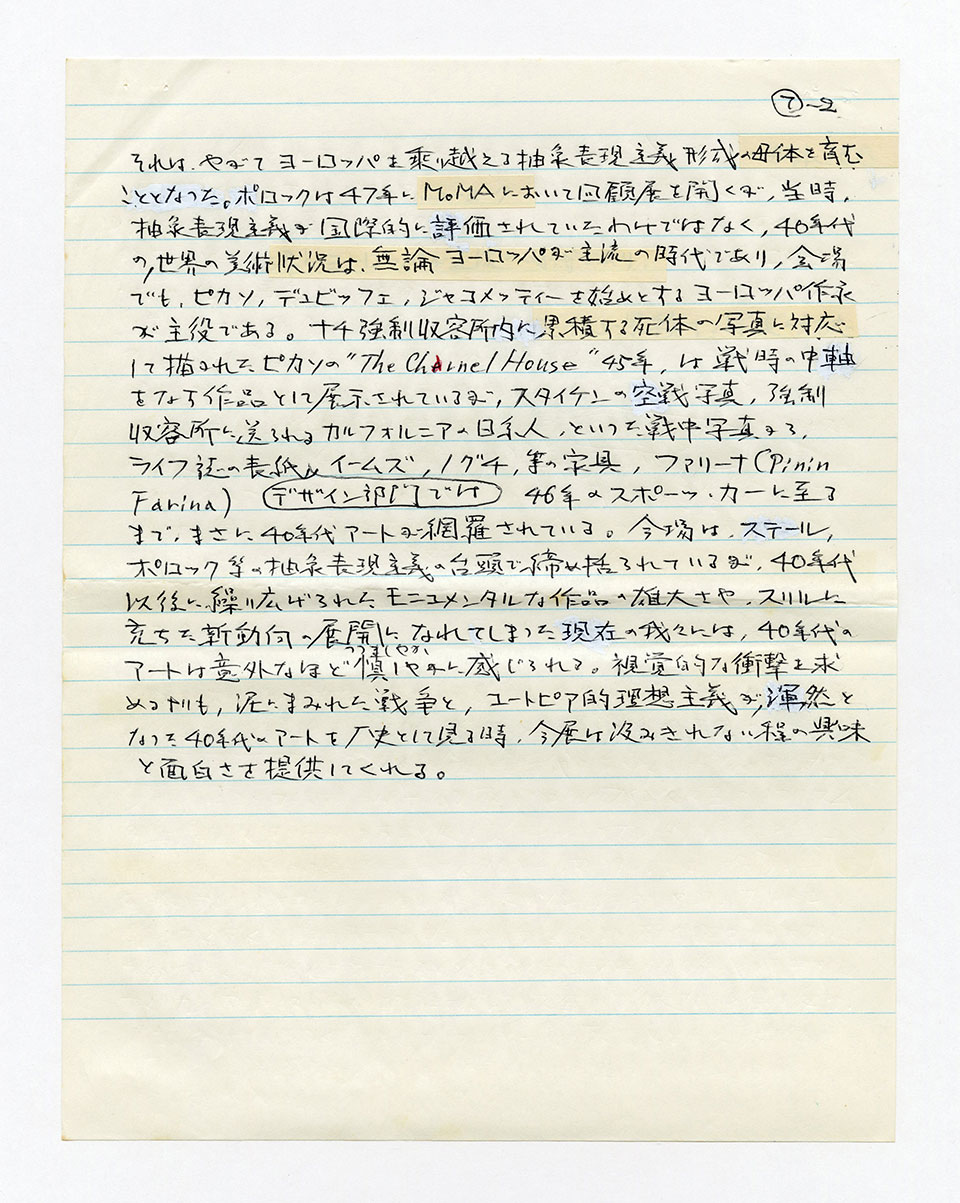 ⑦-2
それは、やがて ヨーロッパを乗り越える抽象表現主義形成の母体を育む
こととなった。ポロックは47年に MoMAにおいて回顧展を開くが，当時，
抽象表現主義が国際的に評価されていたわけではなく，40年代
の，世界の美術状況は、無論ヨーロッパが主流の時代であり，会場
でも、ピカソ，デュビッフェ，ジャコメッティーを始めとするヨーロッパ作家
が主役である。ナチ強制収容所内に累積する死体の写真に対応
して描かれたピカソの"The Charnel House"45年，は戦時の中軸
をなす作品として展示されているが，スタイケンの空戦写真，強制
収容所に送られるカルフォルニアの日系人，といった戦中写真から，
ライフ誌の表紙、イームズ，ノグチ，等の家具，ファリーナ(Pinin
Farina) デザイン部門では 46年のスポーツ・カーに至る
まで，まさに40年代アートが網羅されている。会場は、ステール，
ポロック等の抽象表現主義の台頭で締め括られているが，40年代
以後に繰り広げられたモニュメンタルな作品の雄大さや，スリルに
充ちた新動向の展開に なれてしまった現在の我々には，40年代の
アートは意外なほど慎しやかに感じられる。視覚的な衝撃を求
つつましやか
めるよりも，泥にまみれた戦争と，ユートピア的理想主義が，渾然と
なった40年代のアートを歴史として見る時，今展は汲みきれない程の興味
と面白さを提供してくれる。